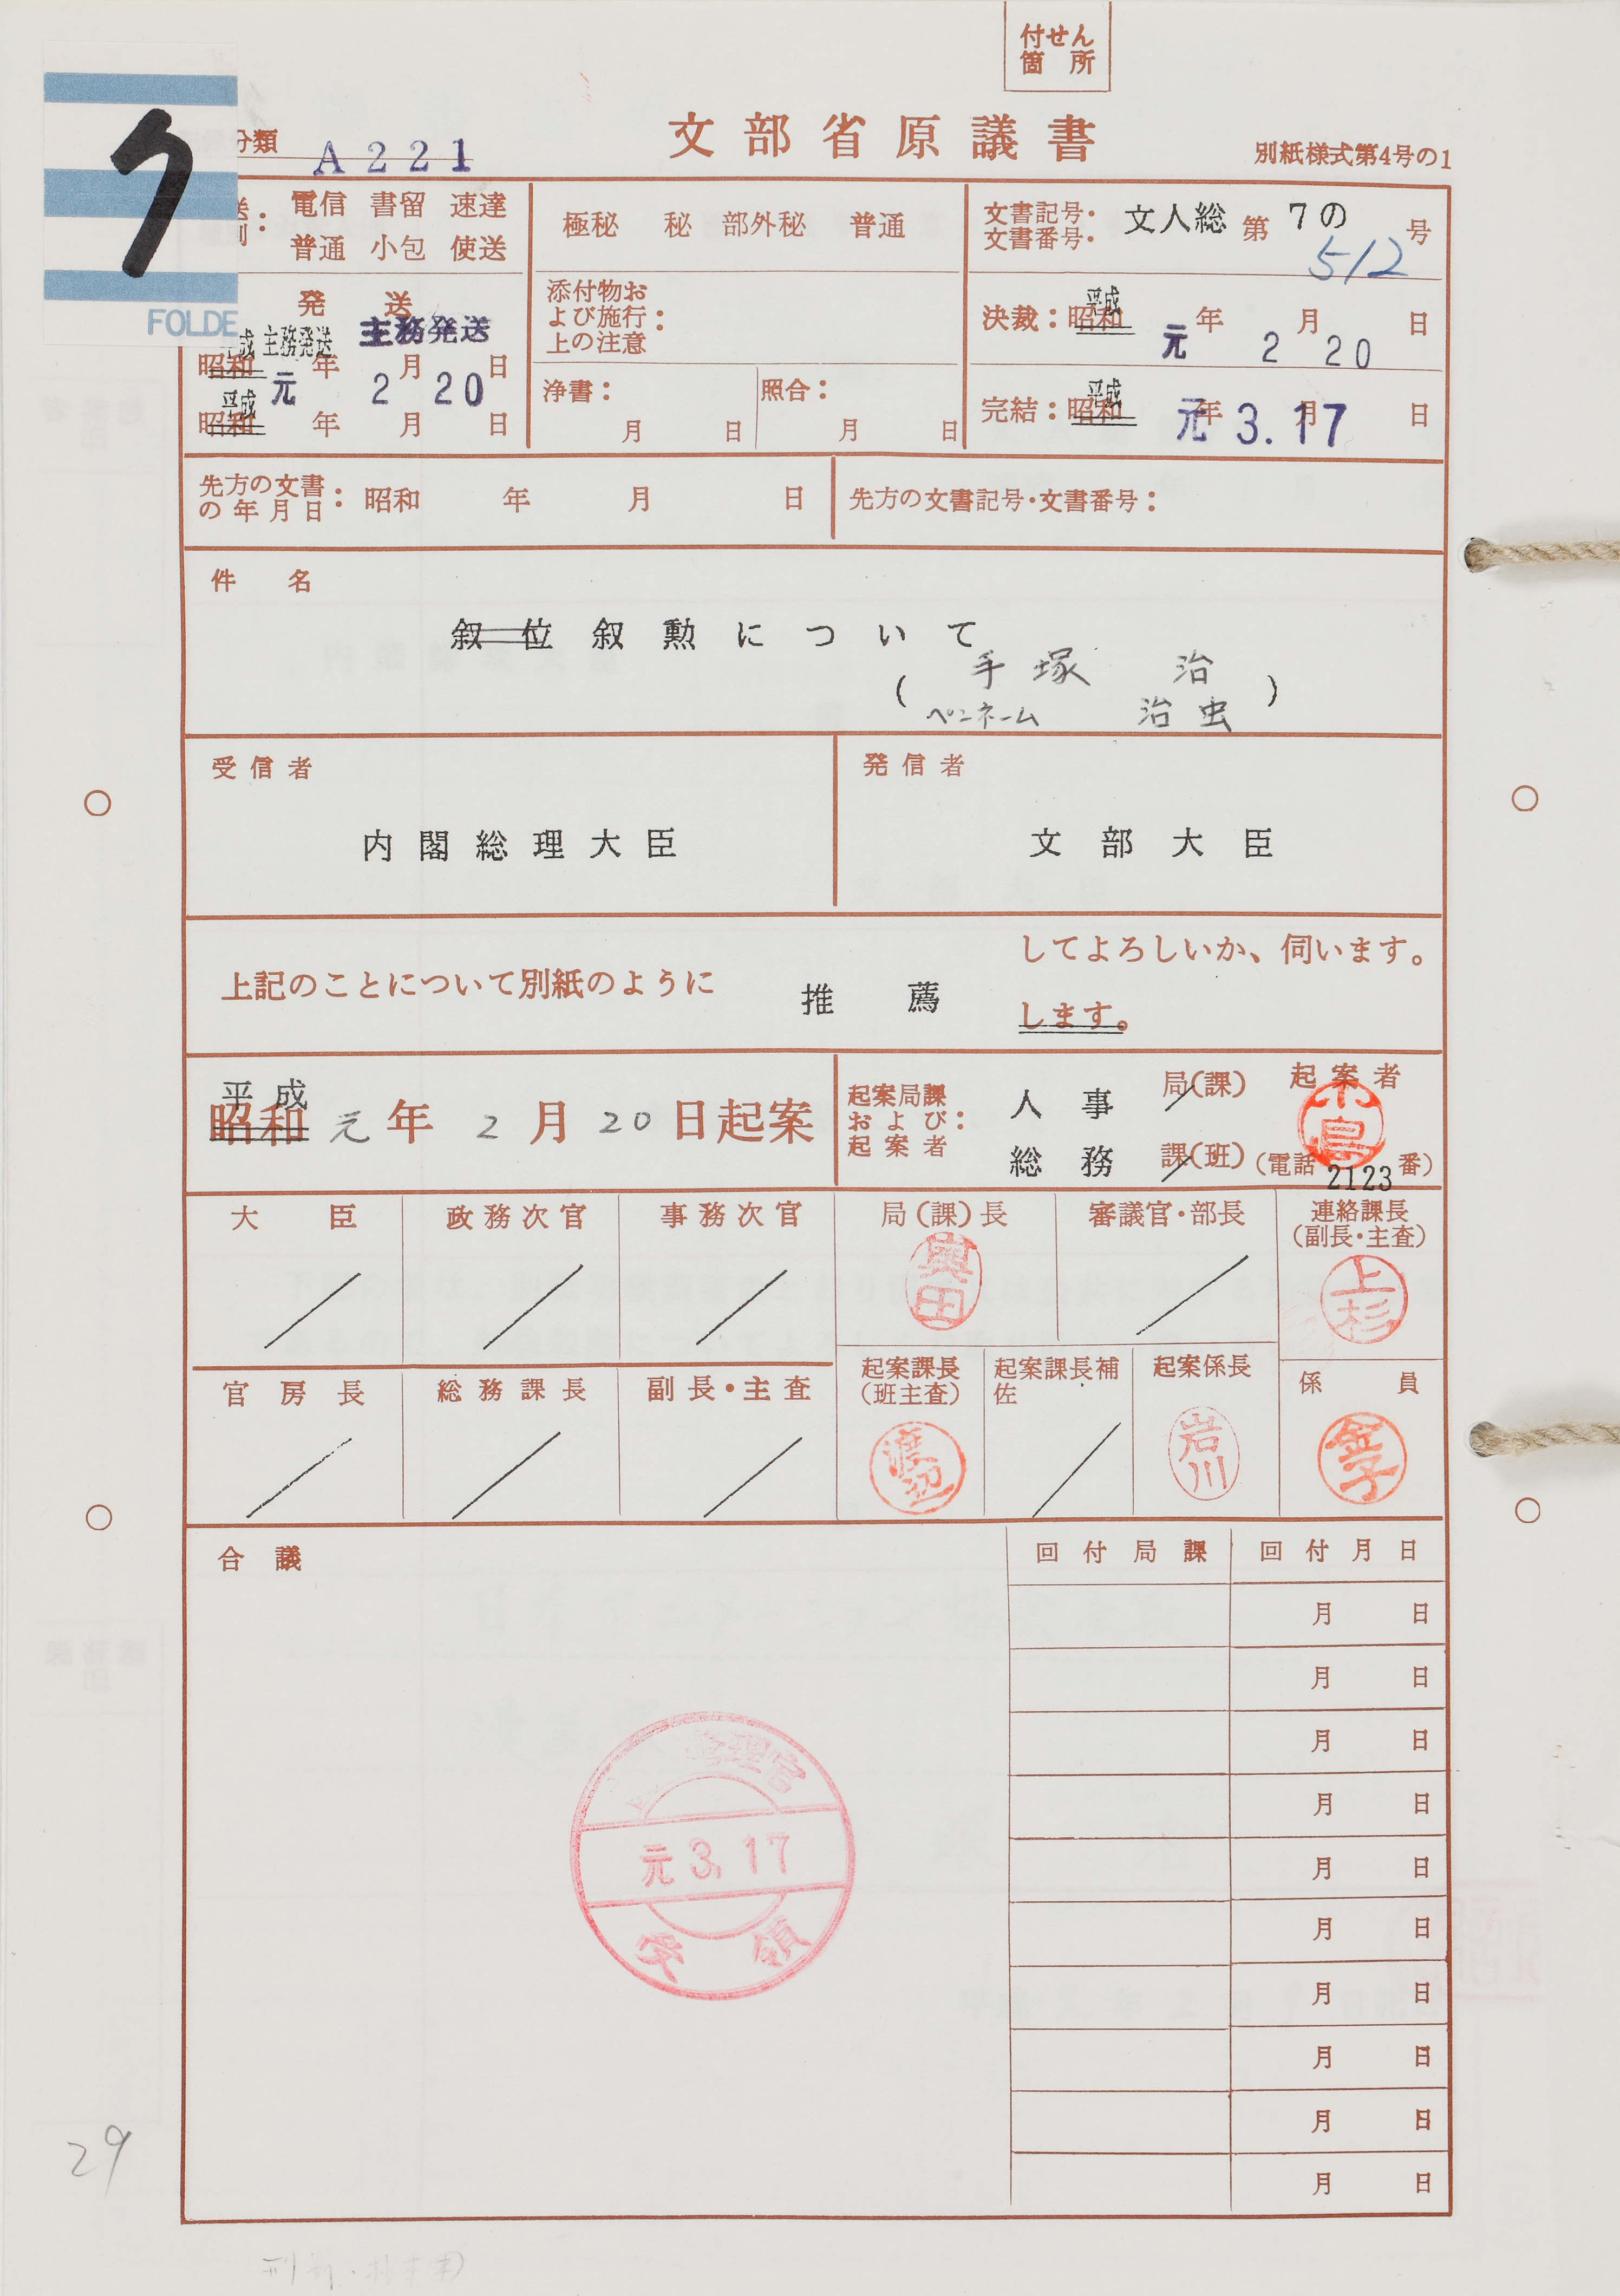 付せん
箇所
ク
FOLDE
分類 A221
文部省原議書
別紙様式第4号の1
電信 書留 速達
普通 小包 使送
極秘 秘 部外秘 普通
文書記号・
文書番号・
文人総 第 7の 号
512
発送
主務発送 主務発送
平成
昭和 年 月 日
元 2 20
平成
昭和 年 月 日
添付物お
よび施行:
上の注意
浄書:
月 日
照合:
月 日
決裁: 平成
昭和 年 月 日
元 2 20
完結: 平成
昭和 年 月 日
元 3.17
先方の文書
の年月日: 昭和 年 月 日
先方の文書記号・文書番号:
件名
叙位叙勲について
( 手塚 治
ペンネーム 治虫 )
受信者
内閣総理大臣
発信者
文部大臣
上記のことについて別紙のように 推薦
してよろしいか、伺います。
します。
平成
昭和 元年 2月 20日起案
起案局課
および:
起案者
人事 局(課)
総務 課(班)
起案者
(電話 2123 番)
大臣
政務次官
事務次官
局(課)長
奥田
審議官・部長
連絡課長
(副長・主査)
上杉
官房長
総務課長
副長・主査
起案課長
(班主査)
渡辺
起案課長補
佐
起案係長
岩川
係員
金子
合議
回付局課 回付月日
月 日
月 日
月 日
月 日
月 日
月 日
月 日
月 日
月 日
月 日
管理官
元 3.17
受領
29